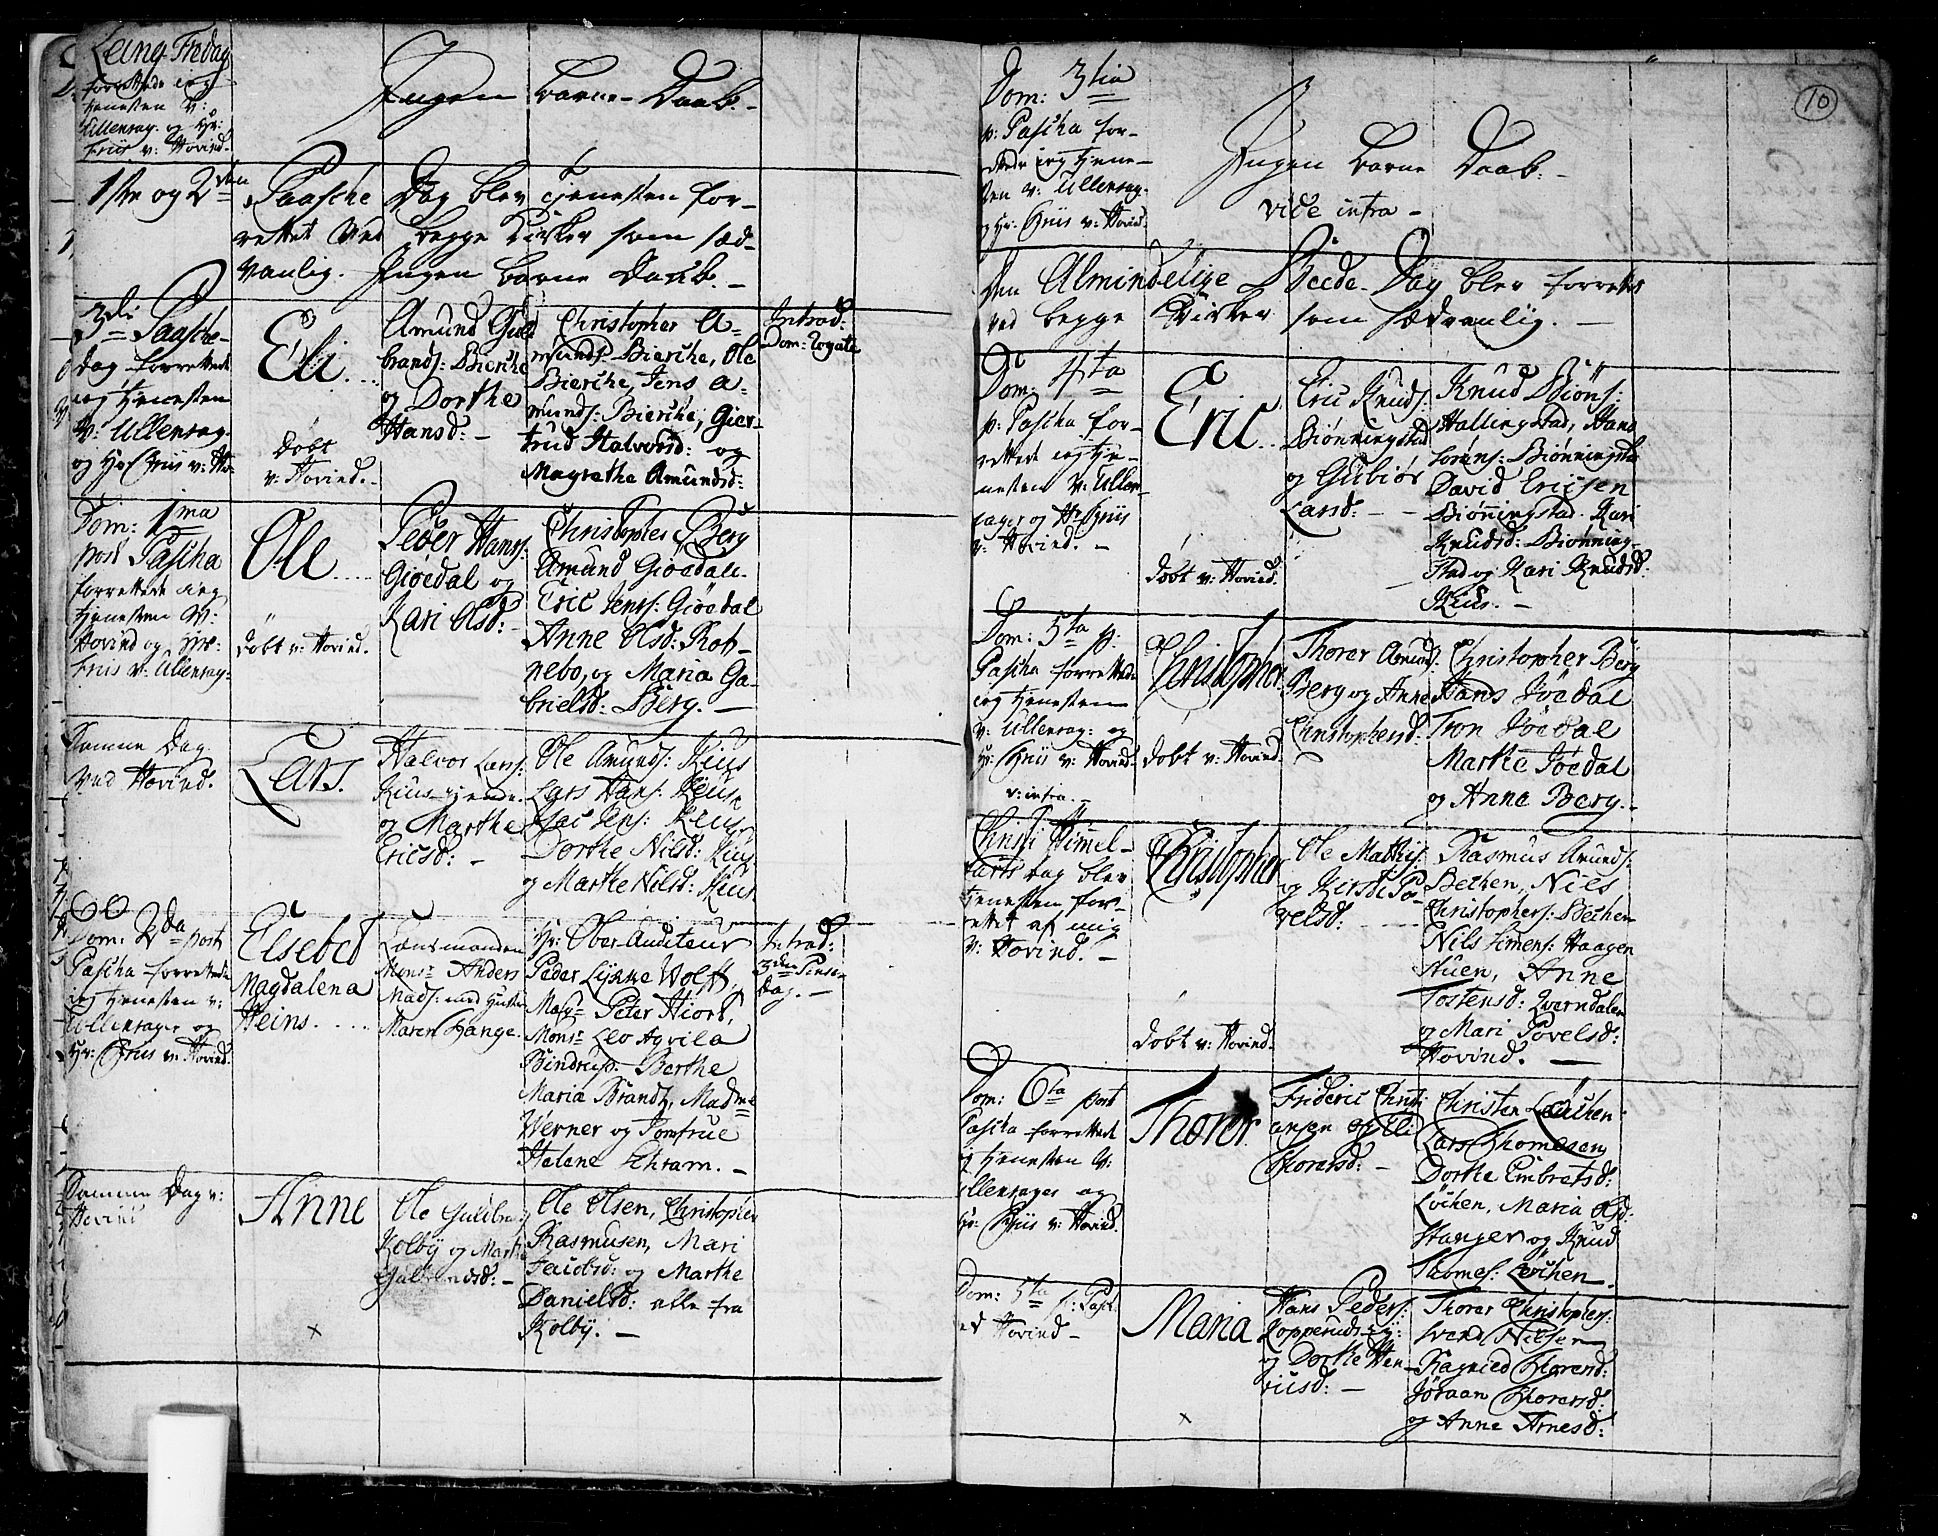 Lang Fredag
forrettede ieg
tienesten v:
Ullensag. og Hr:
Friis v: Hovind.
Ingen Barne-Daab.-
1ste og 2den Paasche Dag blev tienesten for-
rettet ved begge Kirker som sæd-
vanlig. Ingen Barne Daab.-
3die Paasche-
dag forrettede
ieg tienesten
v: Ullensag.
og Hr Friis v: Ho-
Eli
Døbt
v: Hovind.
Amund Gul
brands: Bierche
og Dorthe
Hansd: -
Christopher A-
munds: Bierche, Ole
Bierche, Jens A-
munds: Bierche, Gier-
trud Halvorsd: og
Magrethe Amundsd:
Introd:
Dom: Rogate
Dom: 1ma
post Pascha
forrettede ieg
tienesten v:
Hovind og Hr:
Friis v: Ullensag:
Ole
Døbt v: Hovind.
Peder Hans:
Giøedal og
Kari Olsd:
Christopher Berg
Amund Giøedal.
Eric Jens: Giøedal
Anne Olsd: Rot-
nebo, og Maria Ga-
brielsd: Berg. -
Samme Dag
ved Hovind.
Lars.
Halvor Lars:
Kius
og Marthe
Ericsd: -
Ole Amunds: Kius
Lars Hans: Kius
Isac Jens: Kius
Dorthe Nilsd: Kius
og Marthe Nilsd: Kius
Dom: 2da post
Pascha forrettede
ieg tienesten v:
Ullensager og
Hr: Friis v: Hovind.
Elsebet
Magdalena
Heins.
Lansmanden
Monsr Anders
Mads: med Hustr
Maren Hange.
Hr: Ober-Auditeur
Peder Lykke Wolff,
Monsr Peter Hiort,
Monsr Leo Aqvila
Bindrup. Berthe
Maria Brandt, Madme
Werner og Jomfrue
Helene Schram. -
Introd:
3die Pinse-
Dag. -
Samme Dag v:
Hovind
Anne
Ole Guldbr
Kolby og Marthe
Guldbrandsd: -
Ole Olsen, Christopher
Rasmusen, Mari
Jacobsd: og Marthe
Danielsd: alle fra
Kolby. -
10
Dom: 3tia
p: Pascha for-
rettede ieg tiene-
sten v: Ullensag.
og Hr: Friis v: Hovind
Ingen Barne Daab.-
vide infra -
Den Almindelige Beede-Dag blev forrettet
ved begge Kirker som sædvanlig. -
Dom: 4ta
p: Pascha for-
rettede ieg tie-
nesten v: Ullen-
sager og Hr Friis
v: Hovind. -
Eric
Døbt v: Hovind.
Eric Knuds:
Biønningstad
og Gubiør
Larsd: - -
Knud Biøns:
Hallingstad, Hans
Sørens: Biønningstad
David Ericsen
Biønningstad. Kari
Knudsd: Biønning-
stad og Kari Knudsd:
Kius. -
Dom: 5ta p:
Pascha forrettede
ieg tienesten
v: Ullensag: og
Hr: Friis v: Hovind
v: infra. -
Christopher
Døbt v: Hovind.
Thorer Amunds:
Berg og Anne
Christophersd:
Christopher Berg
Hans Jøedal
Tron Jøedal
Marthe Jøedal
og Anne Berg. -
Christi Himmel-
farts dag blev
tienesten for-
rettet af mig
v: Hovind. -
Christopher
Døbt v: Hovind.
Ole Mathis:
og Kirsti Po-
velsd:
Rasmus Amunds:
Bechen, Niels
Christophers: Bechen
Nils Simens: Haagen
stuen, Anne
Tostensd: Qverndalen
og Mari Povelsd:
Hovind. -
Dom: 6ta post
Pascha forrettede
ieg tienesten v:
Ullensager og
Hr: Friis v: Hovind.
Thorer
Frideric Christi
ansen og Eli
Thorersd: -
Christen Løchen
Lars Thomesen
Dorthe Embretsd:
Løchen, Maria Olsd:
Hanger og Knud
Thomes: Løchen.
Dom: 5ta p: Pasch
ved Hovind -
Maria
Hans Peders:
Kopperudsey:
og Dorthe Hen-
ricsd: -
Thorer Christophers:
Svend Nilsen
Ragnild Thorersd:
Jøraan Thorersd:
og Anne Arnesd: